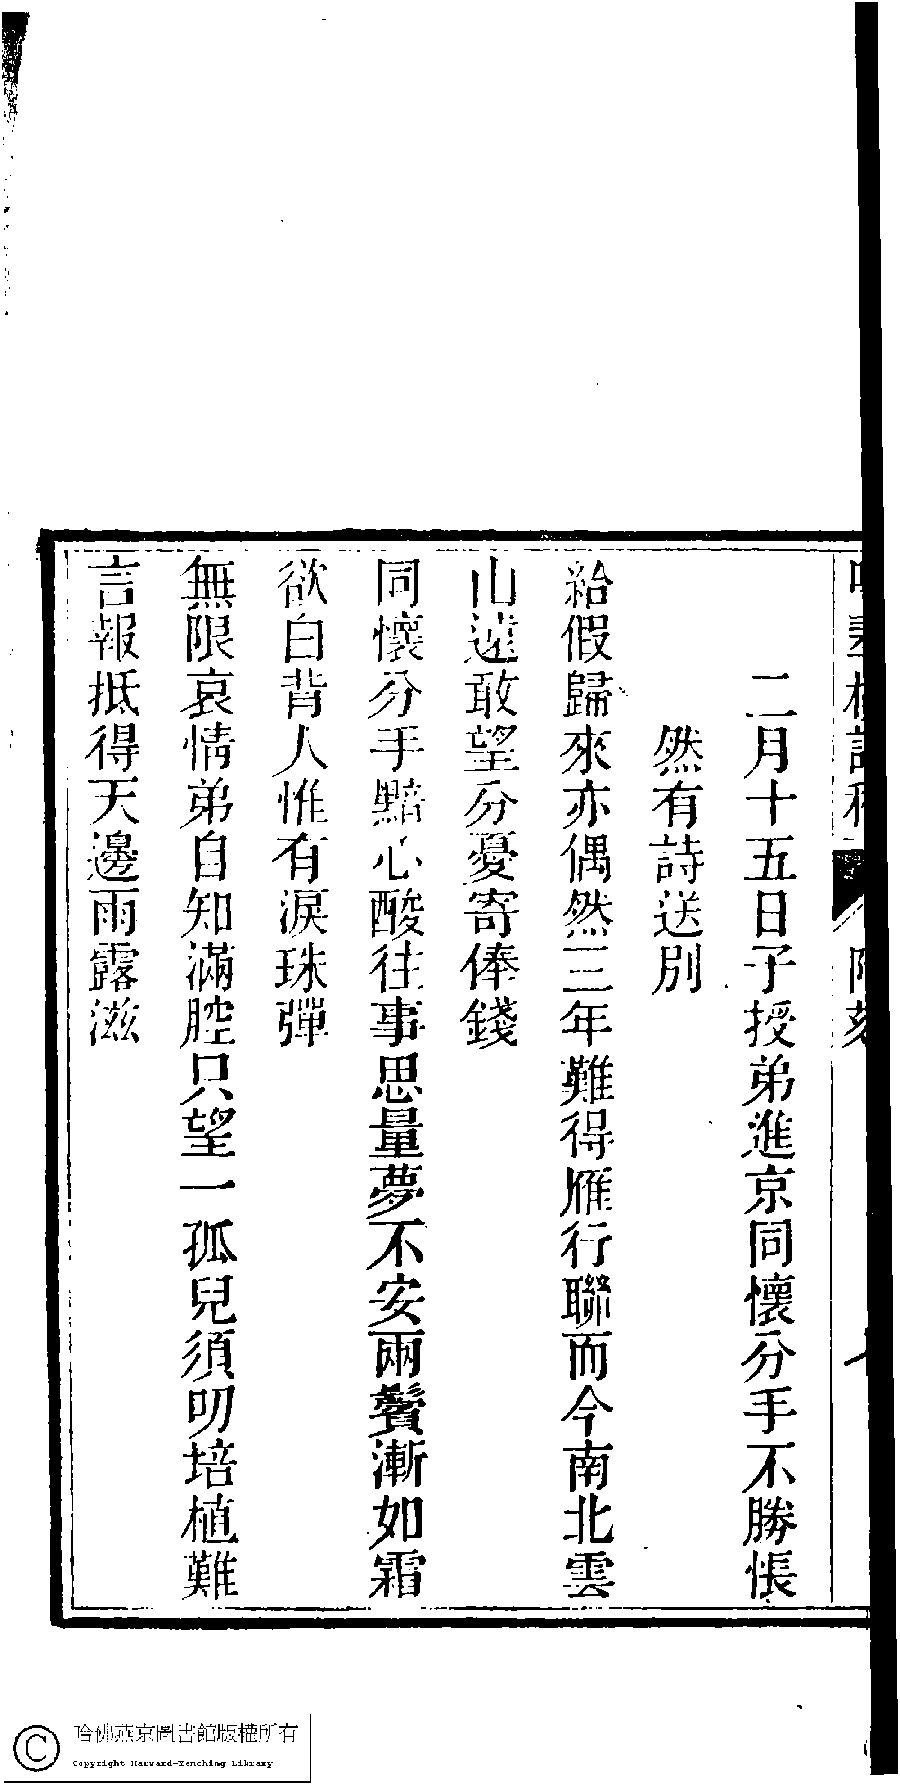 二月十五日子授弟進京同懷分手不勝悵
然有詩送別
給假歸來亦偶然三年難得雁行聯而今南北雲
山遠敢望分憂寄俸錢
同懷分手黯心酸往事思量夢不安兩鬢漸如霜
欲白背人惟有淚珠彈
無限哀情弟自知滿腔只望一孤兒須叨培植難
言報抵得天邊雨露滋
哈佛燕京圖書館版權所有
Copyright Harvard-Yenching Library